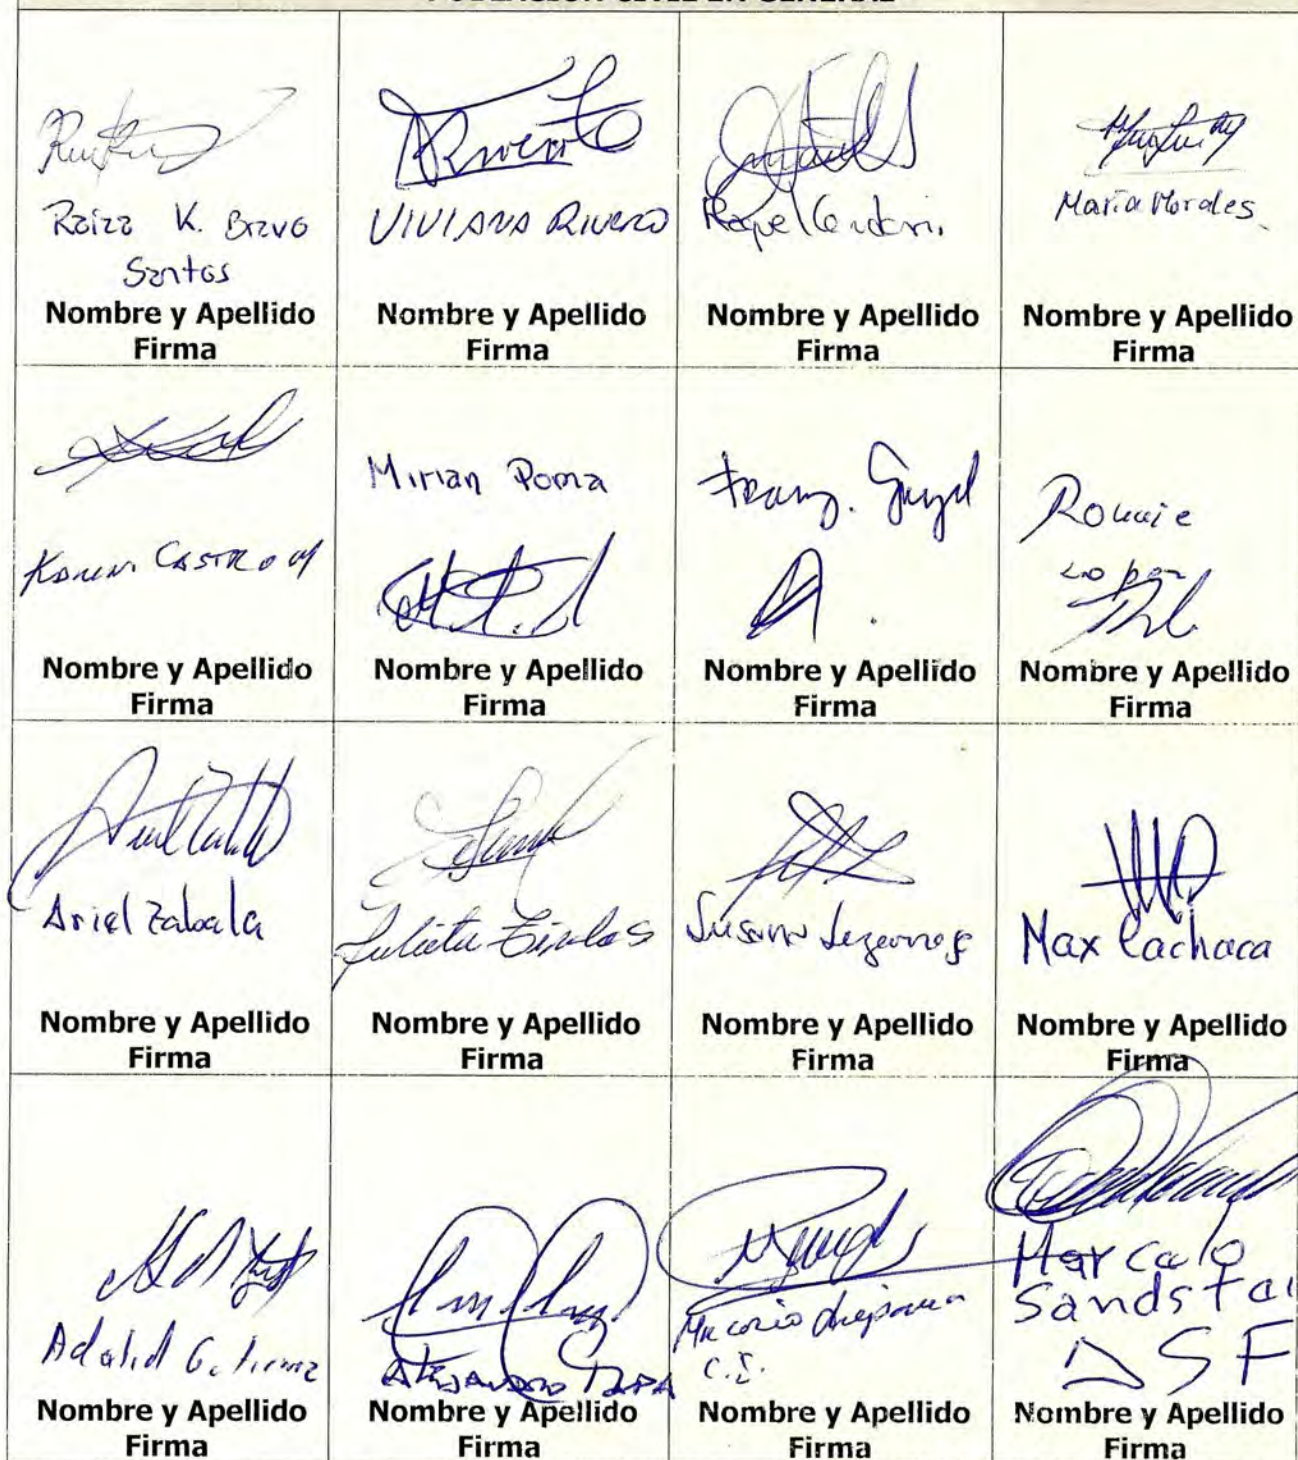 POBLACION CIVIL EN GENERAL
Raiza K. Bravo
Santos
Nombre y Apellido
Firma
Rivero
VIVIANA RIVERO
Nombre y Apellido
Firma
Raquel Condori
Nombre y Apellido
Firma
Maria Morales
Nombre y Apellido
Firma
Karen Castro M
Nombre y Apellido
Firma
Mirian Poma
Nombre y Apellido
Firma
Franz.
Nombre y Apellido
Firma
Ronnie
Lopez
Nombre y Apellido
Firma
Ariel Zabala
Nombre y Apellido
Firma
Julieta
Nombre y Apellido
Firma
Susana
Nombre y Apellido
Firma
Max Cachaca
Nombre y Apellido
Firma
Adalid Gutierrez
Nombre y Apellido
Firma
Alejandro
Nombre y Apellido
Firma
C.I.
Nombre y Apellido
Firma
Marcelo
Sandsta
ASF
Nombre y Apellido
Firma